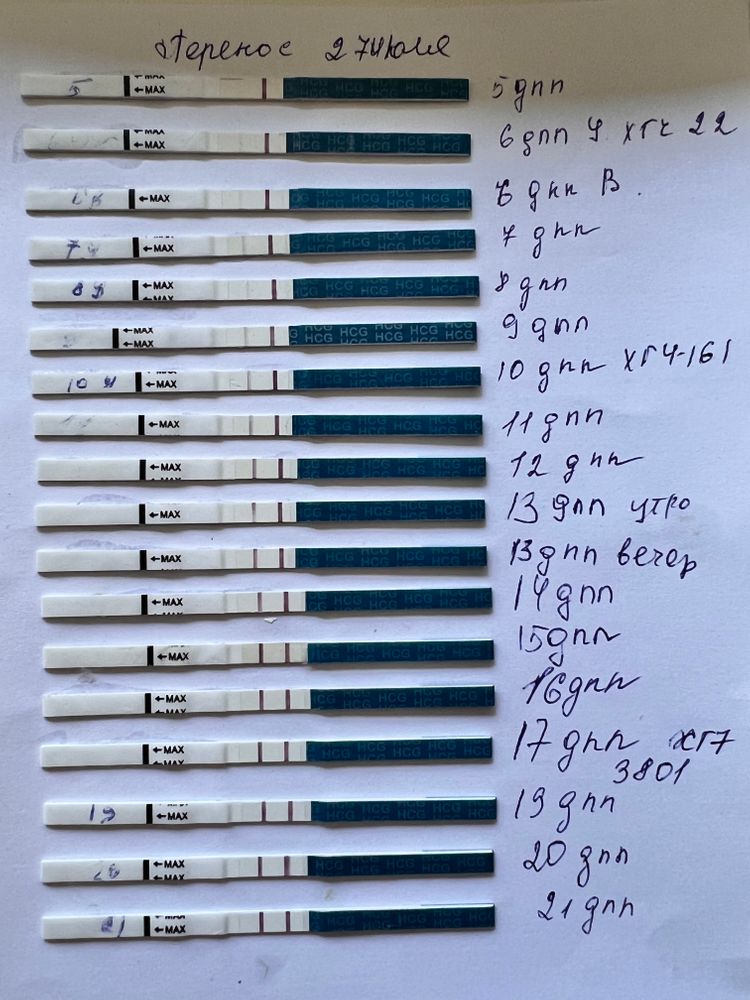 Перенос 27 июля
5
←MAX
←MAX
HCG HCG HCG
5 дпп
←MAX
←MAX
6 дпп У ХГЧ 22
6 В
←MAX
HCG HCG HCG
6 дпп В.
7 У
←MAX
HCG HCG HCG
7 дпп
8
←MAX
HCG HCG HCG
8 дпп
←MAX
←MAX
HCG HCG HCG HCG
9 дпп
10 У
←MAX
HCG HCG HCG
10 дпп ХГЧ-161
←MAX
HCG HCG HCG
11 дпп
←MAX
HCG HCG HCG
12 дпп
←MAX
HCG HCG HCG
13 дпп утро
←MAX
HCG HCG HCG
13 дпп вечер
←MAX
HCG HCG HCG
14 дпп
←MAX
HCG HCG HCG
15 дпп
←MAX
HCG HCG HCG
16 дпп
←MAX
←MAX
HCG HCG HCG
17 дпп ХГЧ
3801
19
←MAX
HCG HCG HCG
19 дпп
20
←MAX
←MAX
HCG HCG HCG
20 дпп
21
←MAX
←MAX
HCG HCG HCG
21 дпп